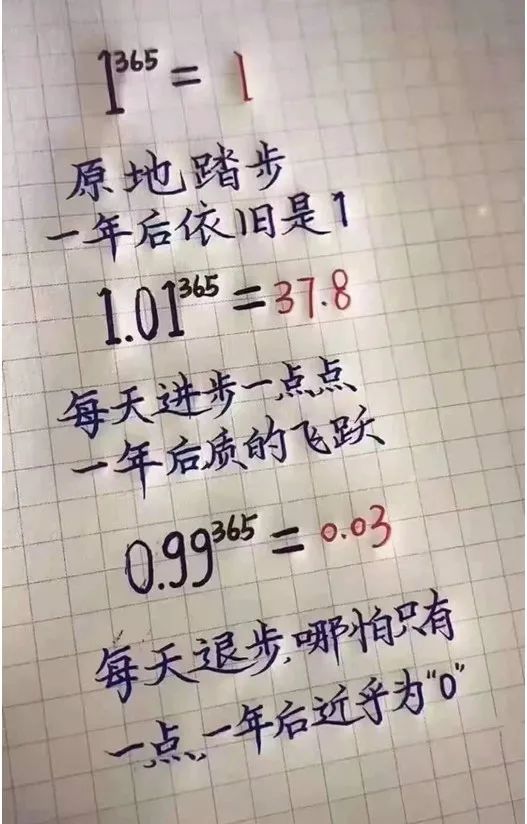 1³⁶⁵ = 1
原地踏步
一年后依旧是1
1.01³⁶⁵ = 37.8
每天进步一点点
一年后质的飞跃
0.99³⁶⁵ = 0.03
每天退步,哪怕只有
一点,一年后近乎为"0"